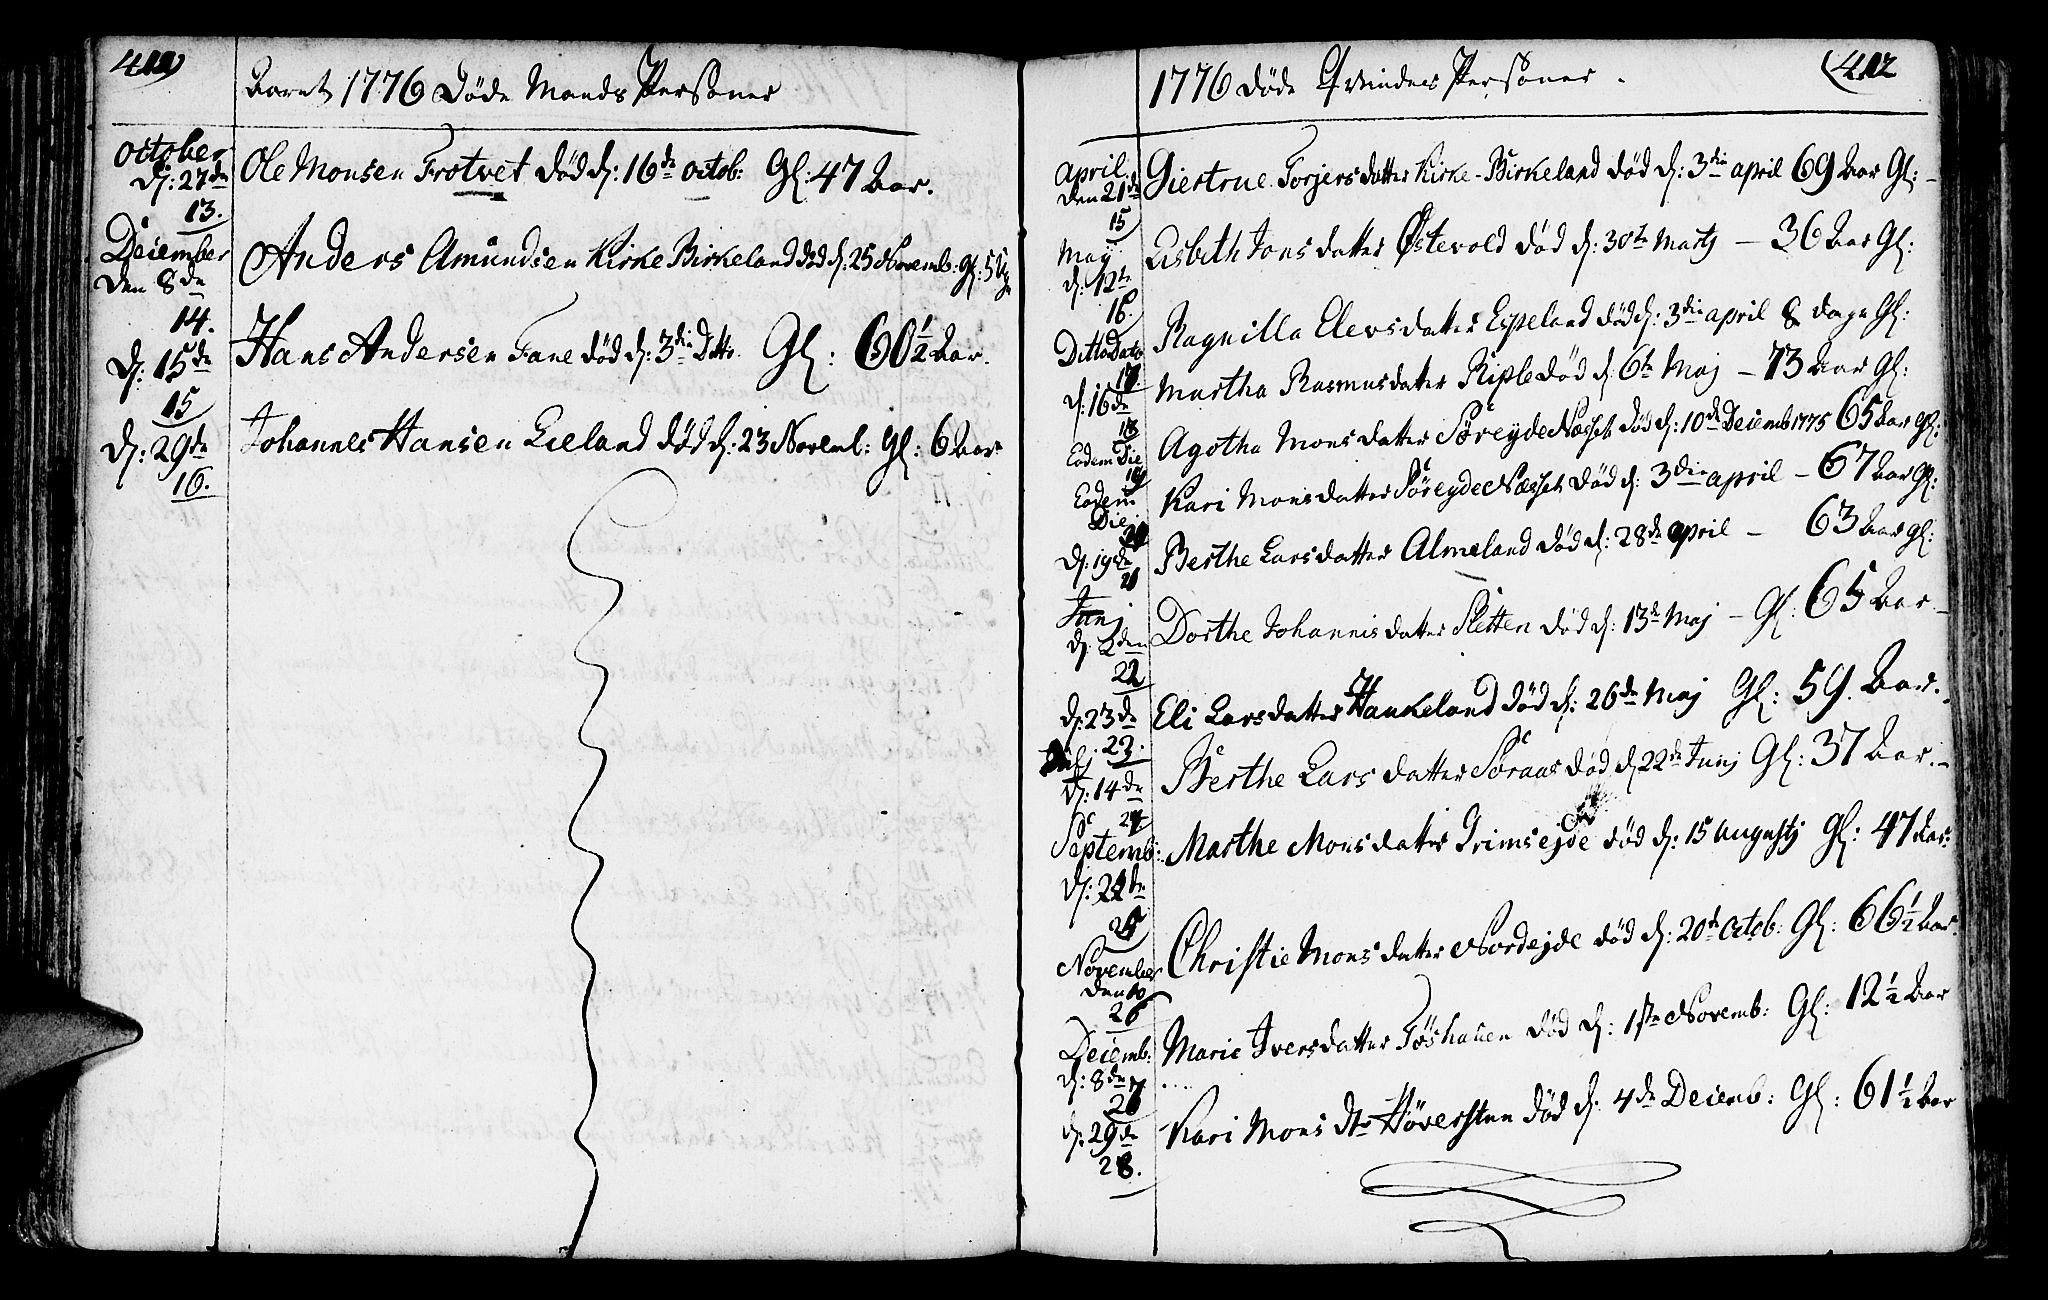 411)
Aaret 1776 Døde Mands Personer
October
d: 27de
13.
Ole Monsen Trotvet Død d: 16de octob: Gl: 47 Aar.
Deiember
den 8de
14.
Anders Amundsen Kirke Birkeland død d: 25 Novemb: Gl: 5 Uger
d: 15de
15
Hans Andersen Fane død d: 3die Ditto. Gl: 60½ Aar.
d: 29de
16.
Johannes Hansen Lieland død d: 23 Novemb: Gl: 6 Aar
1776 døde Qvindes Personer.
(412
april.
den 21de
15
Giertrue Torjersdatter Kirke-Birkeland død d: 3die april 69 Aar Gl:
May
d: 12te
16.
Lisbeth Jonsdatter Østevold død d: 30te Martj – 36 Aar Gl:
Ditto Dato
17
Ragnilla Elersdatter Espeland død d: 3die april 8 dage Gl:
d: 16de
18
Martha Rasmusdatter Riple død d: 6te Maj – 73 Aar Gl:
Eodem Die
19
Agotha Monsdatter Søreyde Næsset død d: 10de Deiemb 1775 65 Aar gl:
Eodem
Die
20
Kari Monsdatter Søreyde Næsset død d: 3die april – 67 Aar Gl:
d: 19de
21
Berthe Larsdatter Almeland død d: 28de april – 63 Aar gl:
Junj
d. 2den
22
Dorthe Johannisdatter Sletten død d: 13de Maj – Gl: 65 Aar –
d: 23de
23.
Eli Larsdatter Haukeland død d: 26de Maj Gl: 59. Aar.
d: 14de
24
Berthe Larsdatter Søraas død d 22de Junj Gl: 37 Aar. –
Septemb:
d: 22de
25
Marthe Monsdatter Grimsejde død d: 15 Augustj Gl: 47 Aar:
November
den 10
26
Christie Monsdatter Nordejde død d: 20de octob: Gl: 66½ Aar.
Deiemb:
d: 8de
27
Marie Iversdatter Tøshauen død d: 1ste Novemb: Gl: 12½ Aar
d: 29de
28.
Kari Mons dtr Høversten død d: 4de Deiemb: Gl: 61½ Aar